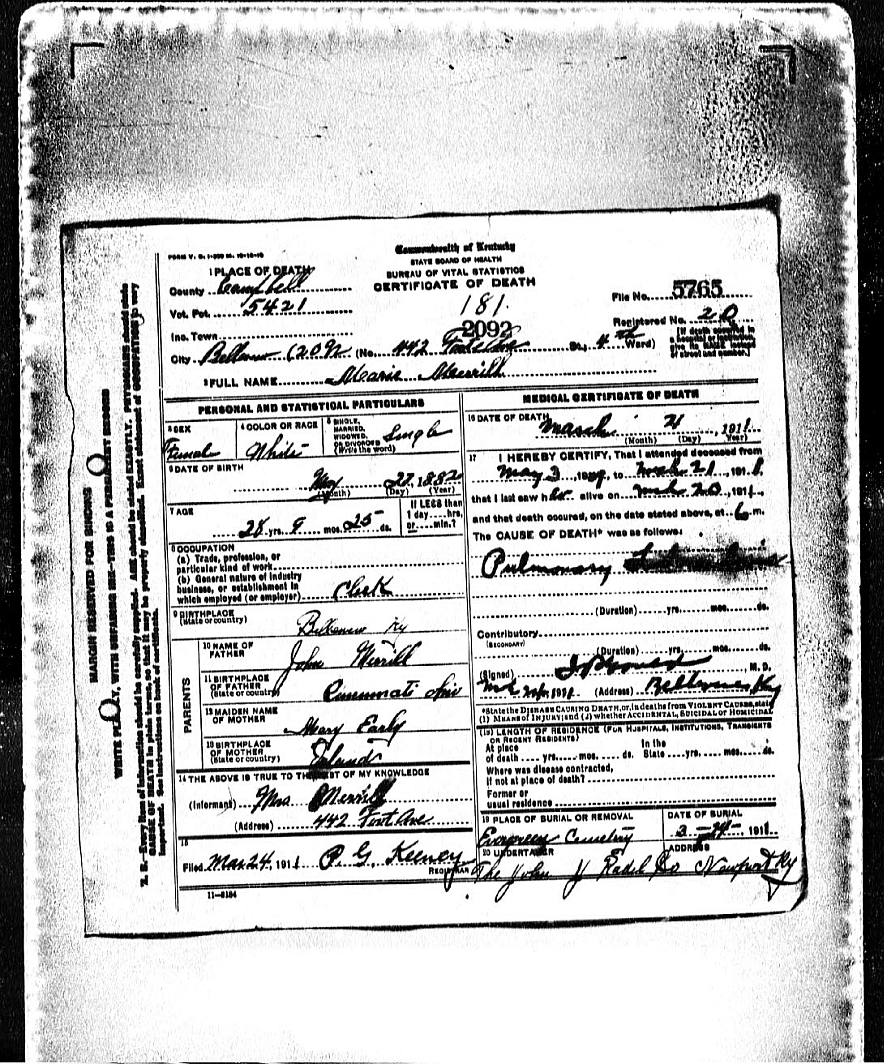 FORM V. S.
Commonwealth of Kentucky
STATE BOARD OF HEALTH
BUREAU OF VITAL STATISTICS
CERTIFICATE OF DEATH
1 PLACE OF DEATH
County Campbell
Vot. Pct. 5421
181.
File No. 5765
Inc. Town
2092
Registered No. 20
City Bellevue (No. 442 Foote Ave St.; 4th Ward)
[If death occurred in a hospital or institution give its NAME instead of street and number.]
2 FULL NAME Marie Merrill
PERSONAL AND STATISTICAL PARTICULARS
3 SEX Female
4 COLOR OR RACE White
5 SINGLE, MARRIED, WIDOWED, OR DIVORCED (Write the word) Single
6 DATE OF BIRTH
May 27, 1882
(Month) (Day) (Year)
7 AGE
28 yrs. 9 mos. 25 ds.
If LESS than 1 day....hrs. or....min.?
8 OCCUPATION
(a) Trade, profession, or
particular kind of work
(b) General nature of industry
business, or establishment in
which employed (or employer) Clerk
9 BIRTHPLACE
(State or country) Bellevue Ky
PARENTS
10 NAME OF
FATHER John Merrill
11 BIRTHPLACE
OF FATHER
(State or country) Cincinnati Ohio
12 MAIDEN NAME
OF MOTHER Mary Early
13 BIRTHPLACE
OF MOTHER
(State or country) Ireland
14 THE ABOVE IS TRUE TO THE BEST OF MY KNOWLEDGE
(Informant) Mrs. Merrill
(Address) 442 Foot Ave
15
Filed Mar 24, 1911 P. G. Keeney
REGISTRAR
11-6184
MEDICAL CERTIFICATE OF DEATH
16 DATE OF DEATH
March 21, 1911
(Month) (Day) (Year)
17 I HEREBY CERTIFY, That I attended deceased from
May 3, to Mch 21, 1911,
that I last saw her alive on Mch 20, 1911,
and that death occured, on the date stated above, at 6 m.
The CAUSE OF DEATH* was as follows:
Pulmonary
(Duration) yrs. mos. ds.
Contributory
(SECONDARY)
(Duration) yrs. mos. ds.
(Signed) M. D.
1911 (Address) Bellevue Ky
*State the DISEASE CAUSING DEATH, or, in deaths from VIOLENT CAUSES, state
(1) MEANS OF INJURY; and (2) whether ACCIDENTAL, SUICIDAL or HOMICIDAL
(18) LENGTH OF RESIDENCE (FOR HOSPITALS, INSTITUTIONS, TRANSIENTS
OR RECENT RESIDENTS)
At place
of death yrs. mos. ds.
In the
State yrs. mos. ds.
Where was disease contracted,
if not at place of death?
Former or
usual residence
19 PLACE OF BURIAL OR REMOVAL
Evergreen Cemetery
DATE OF BURIAL
3-24-1911
20 UNDERTAKER
The John J Radel Co
ADDRESS
Newport Ky
MARGIN RESERVED FOR BINDING
WRITE PLAINLY, WITH UNFADING INK—THIS IS A PERMANENT RECORD
N. B.—Every item of information should be carefully supplied. AGE should be stated EXACTLY. PHYSICIANS should state
CAUSE OF DEATH in plain terms, so that it may be properly classified. Exact statement of OCCUPATION is very
important. See instructions on back of certificate.